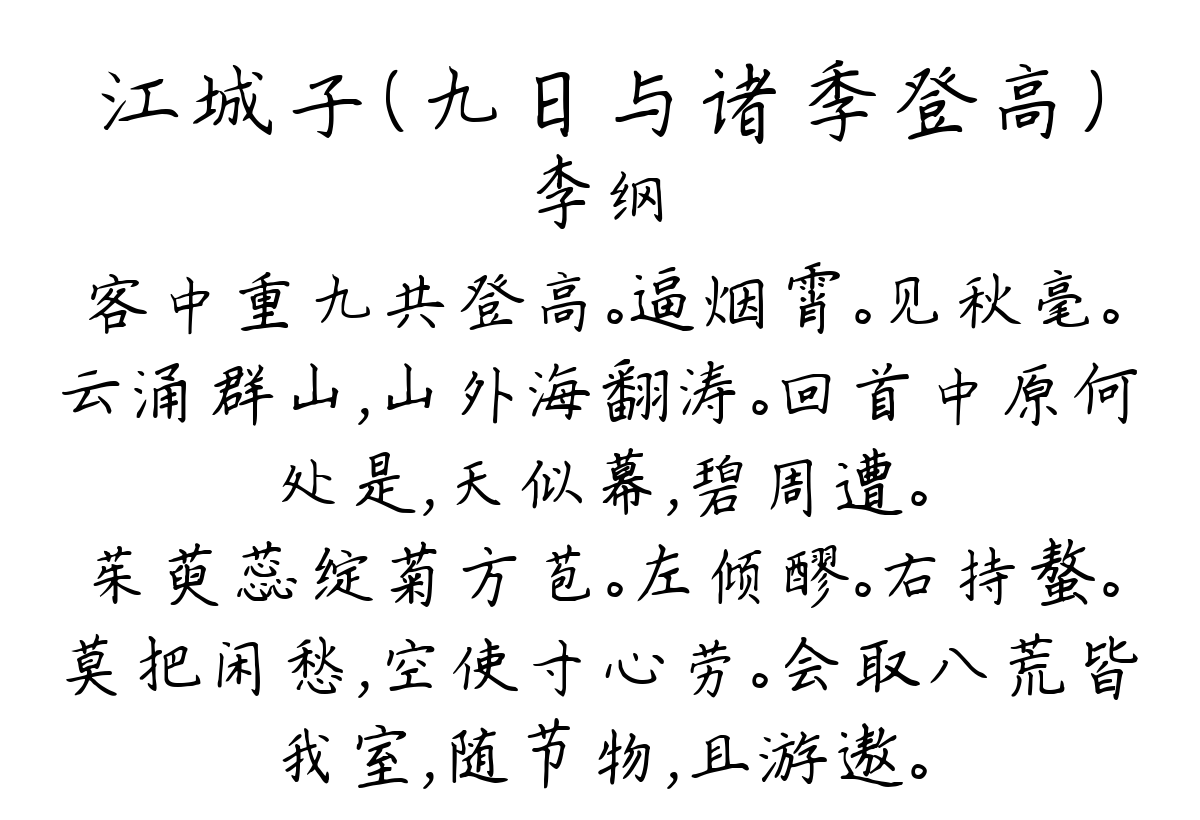 江城子(九日与诸季登高)
李纲
客中重九共登高。逼烟霄。见秋毫。
云涌群山,山外海翻涛。回首中原何
处是,天似幕,碧周遭。
茱萸蕊绽菊方苞。左倾醪。右持螯。
莫把闲愁,空使寸心劳。会取八荒皆
我室,随节物,且游遨。